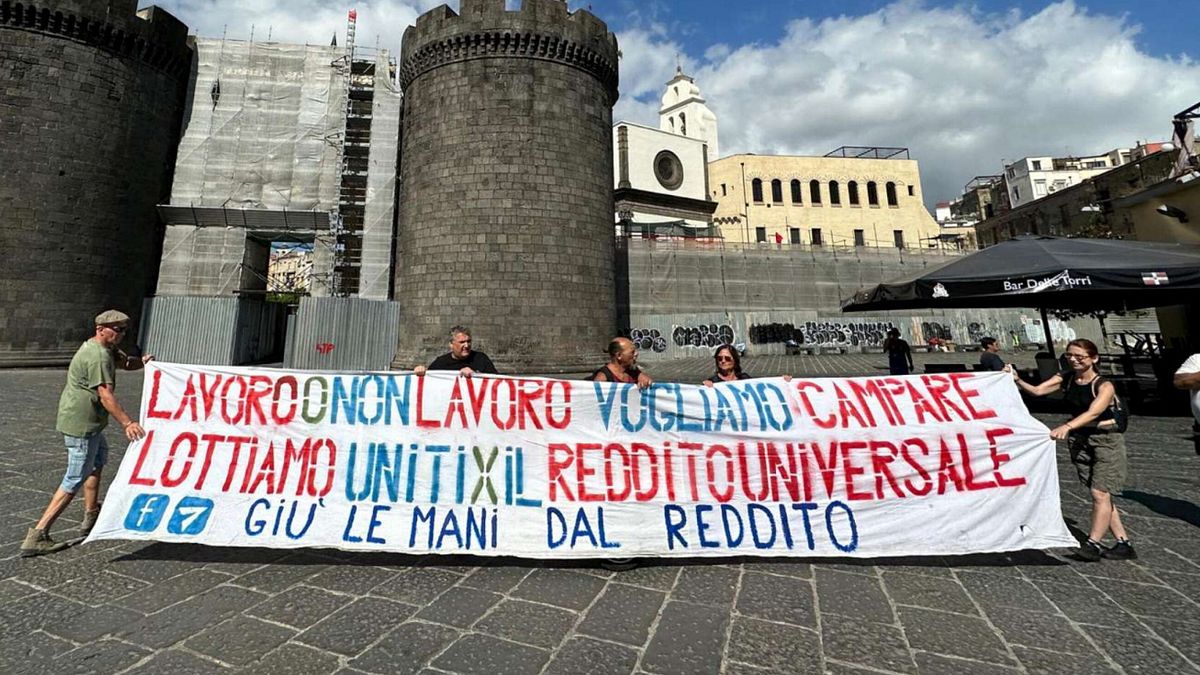 Bar Delle Torri
LAVORO O NON LAVORO VOGLIAMO CAMPARE
LOTTIAMO UNITI X iL REDDITO UNIVERSALE
GIÙ LE MANI DAL REDDITO